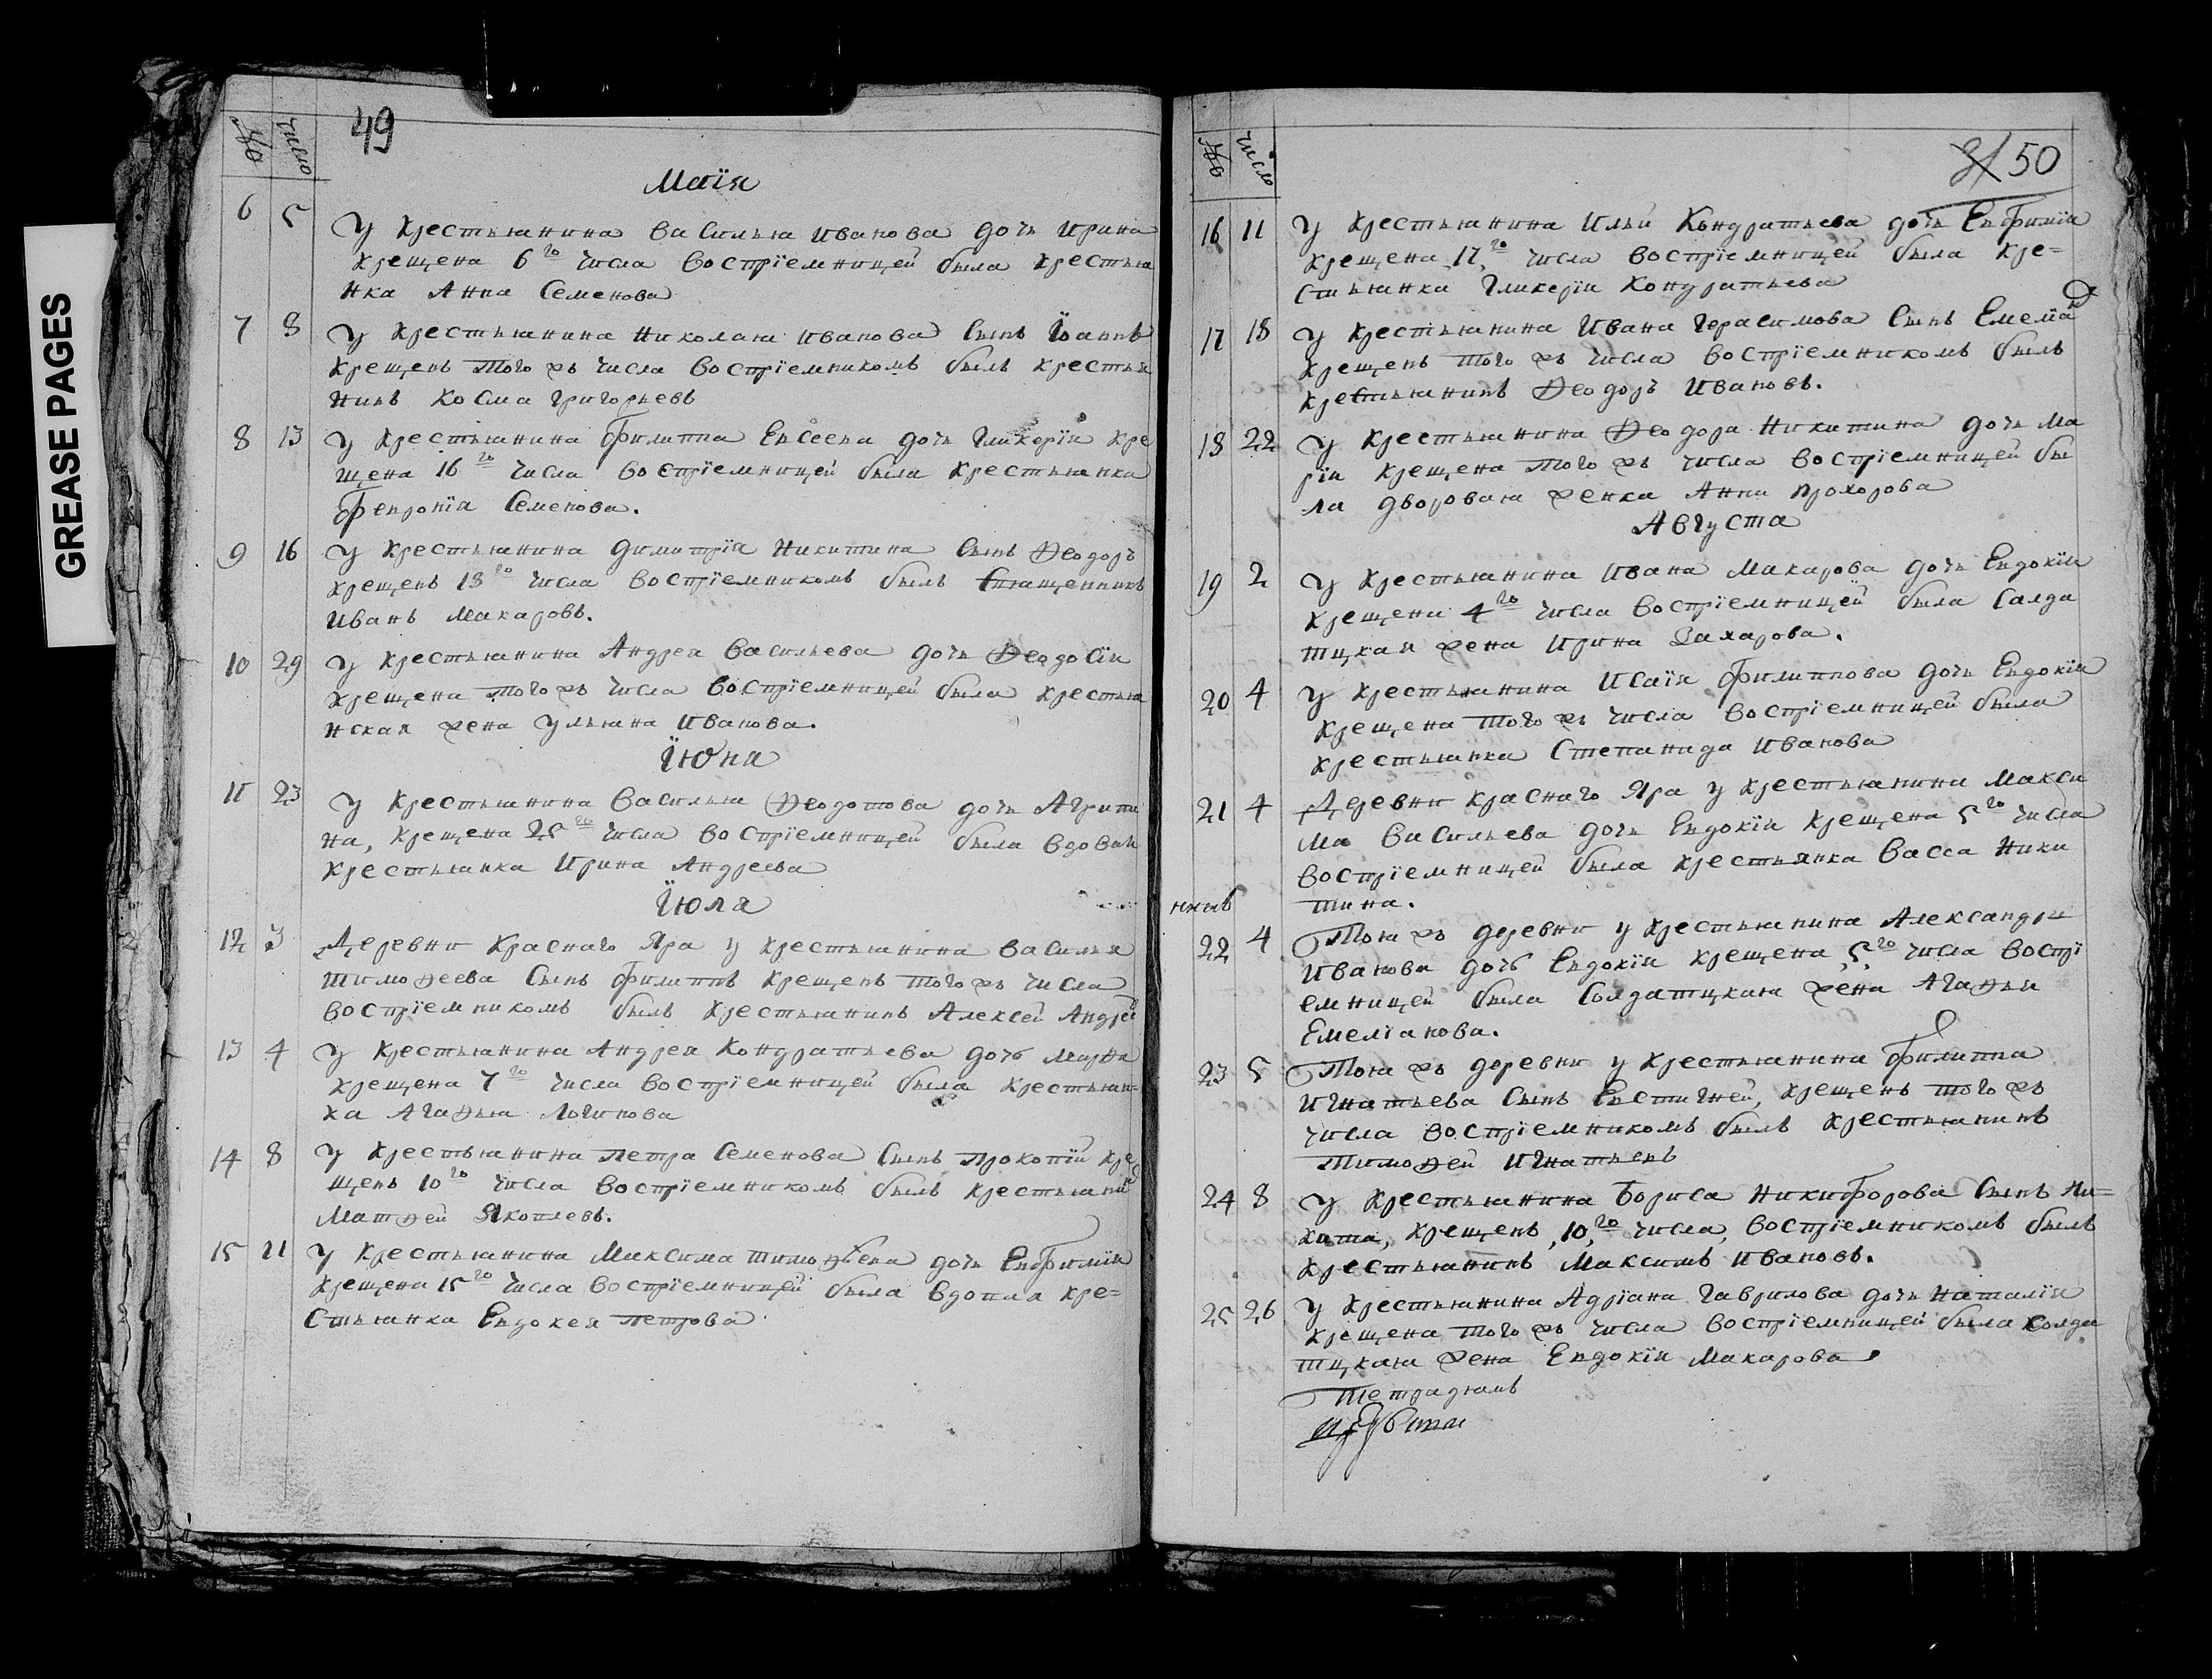 GREASE PAGES
49
№ число
Маїя
6 5 У крестьянина Василья Иванова дочь Ирина
крещена 6го числа воспрїемницей была крестья
нка Анна Семенова
7 8 У крестьянина Николая Иванова сынъ Їоаннъ
крещенъ того жъ числа воспрїемникомъ былъ крестья
нинъ Косма Григорьевъ
8 13 У крестьянина Филиппа Евсеева дочь Гликерїя кре
щена 16го числа воспрїемницей была крестьянка
Февронїя Семенова.
9 16 У крестьянина Димитрїя Никитина сынъ Ѳеодоръ
крещенъ 18го числа воспрїемникомъ былъ священникъ
Иванъ Макаровъ.
10 29 У крестьянина Андрея Васильева дочь Ѳеодосїя
крещена того жъ числа воспрїемницей была крестья
нская жена Ульяна Иванова.
Їюня
11 23 У крестьянина Василья Ѳеодотова дочь Агрипи
на, крещена 25го числа воспрїемницей была вдовая
крестьянка Ирина Андреева
Їюля
12 3 Деревни Краснаго Яра у крестьянина Василья
Тимоѳеева сынъ Филиппъ крещенъ того жъ числа
воспрїемникомъ былъ крестьянинъ Алексей Андрее
13 4 У крестьянина Андрея Кондратьева дочь Марѳа
крещена 7го числа воспрїемницей была крестьян-
ка Агаѳья Логинова
14 8 У крестьянина Петра Семенова сынъ Прокопїй кре
щенъ 10го числа воспрїемникомъ былъ крестьянинъ
Матѳей Яковлевъ.
15 11 У крестьянина Максима Тимоѳеева дочь Евфимїя
крещена 15го числа воспрїемницей была вдовая кре=
стьянка Евдокея Петрова
№ число
31 50
16 11 У крестьянина Ильи Кондратьева дочь Евфимїя
крещена 17го числа воспрїемницей была кре=
стьянка Гликерїя Кондратьева
17 18 У крестьянина Ивана Герасимова сынъ Емелїа
крещенъ того жъ числа воспрїемникомъ былъ
крестьянинъ Ѳеодоръ Ивановъ.
18 22 У крестьянина Ѳеодора Никитина дочь Ма
рїя крещена того жъ числа воспрїемницей бы
ла дворовая женка Анна Прохорова
Августа
19 2 У крестьянина Ивана Макарова дочь Евдокїя
крещена 4го числа воспрїемницей была салда
тцкая жена Ирина Захарова.
20 4 У крестьянина Исаїя Филиппова дочь Евдокїя
крещена того жъ числа воспрїемницей была
крестьянка Степанида Иванова
21 4 Деревни Краснаго Яра у крестьянина Макси
ма Васильева дочь Евдокїя крещена 5го числа
воспрїемницей была крестьянка Васса Ники
тина.
22 4 Тоя жъ деревни у крестьянина Александра
Иванова дочь Евдокїя крещена 5го числа воспрї
емницей была солдатцкая жена Агаѳья
Емелїанова.
23 5 Тоя жъ деревни у крестьянина Филиппа
Игнатьева сынъ Евстигней, крещенъ того жъ
числа воспрїемникомъ былъ крестьянинъ
Тимоѳей Игнатьевъ
24 8 У крестьянина Бориса Никифорова сынъ Ни=
кита, крещенъ 10го числа, воспрїемникомъ былъ
крестьянинъ Максимъ Ивановъ.
25 26 У крестьянина Адрїана Гаврилова дочь Наталїя
крещена того жъ числа воспрїемницей была солда
тцкая жена Евдокїя Макарова